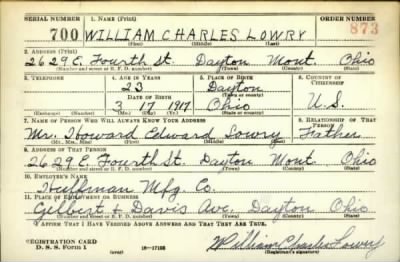 SERIAL NUMBER 1. NAME (Print) ORDER NUMBER
700 WILLIAM CHARLES LOWRY 873
(First) (Middle) (Last)
2. ADDRESS (Print)
2629 E. Fourth St. Dayton Mont. Ohio
(Number and street or R. F. D. number) (Town) (County) (State)
3. TELEPHONE 4. AGE IN YEARS 5. PLACE OF BIRTH 6. COUNTRY OF CITIZENSHIP
23 Dayton
DATE OF BIRTH (Town or county)
3 17 1917 Ohio U.S.
(Exchange) (Number) (Mo.) (Day) (Yr.) (State or country)
7. NAME OF PERSON WHO WILL ALWAYS KNOW YOUR ADDRESS 8. RELATIONSHIP OF THAT PERSON
Mr. Howard Edward Lowry Father
(Mr., Mrs., Miss) (First) (Middle) (Last)
9. ADDRESS OF THAT PERSON
2629 E. Fourth St. Dayton Mont. Ohio
(Number and street or R. F. D. number) (Town) (County) (State)
10. EMPLOYER'S NAME
Huffman Mfg. Co.
11. PLACE OF EMPLOYMENT OR BUSINESS
Gilbert & Davis Ave. Dayton Ohio
(Number and street or R. F. D. number) (Town) (County) (State)
I AFFIRM THAT I HAVE VERIFIED ABOVE ANSWERS AND THAT THEY ARE TRUE.
REGISTRATION CARD
D. S. S. Form 1 (over) 16—17105 William Charles Lowry
(Registrant's signature)